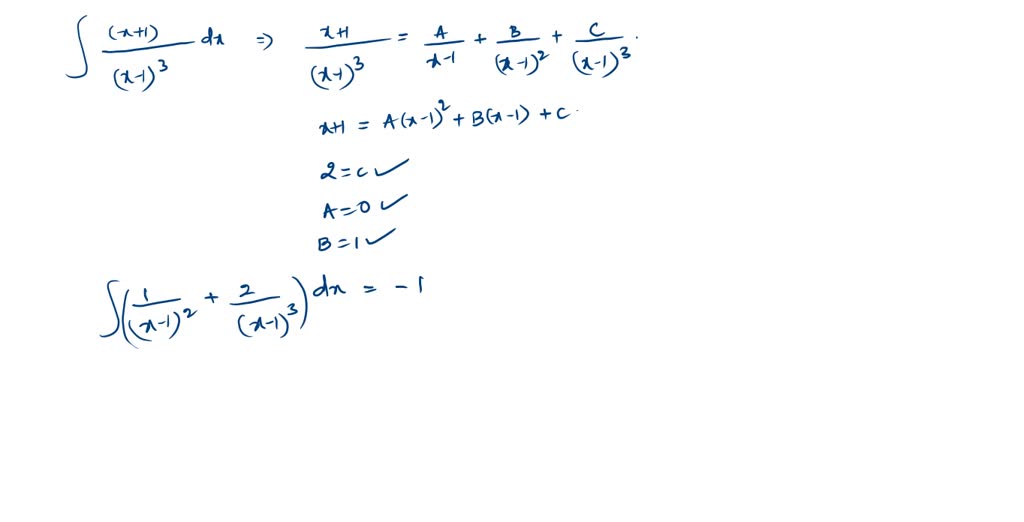 ∫ (x+1)/(x-1)³ dx ⇒ x+1/(x-1)³ = A/x-1 + B/(x-1)² + C/(x-1)³.
x+1 = A(x-1)² + B(x-1) + C.
2 = C ✓
A = 0 ✓
B = 1 ✓
∫(1/(x-1)² + 2/(x-1)³) dx = -1